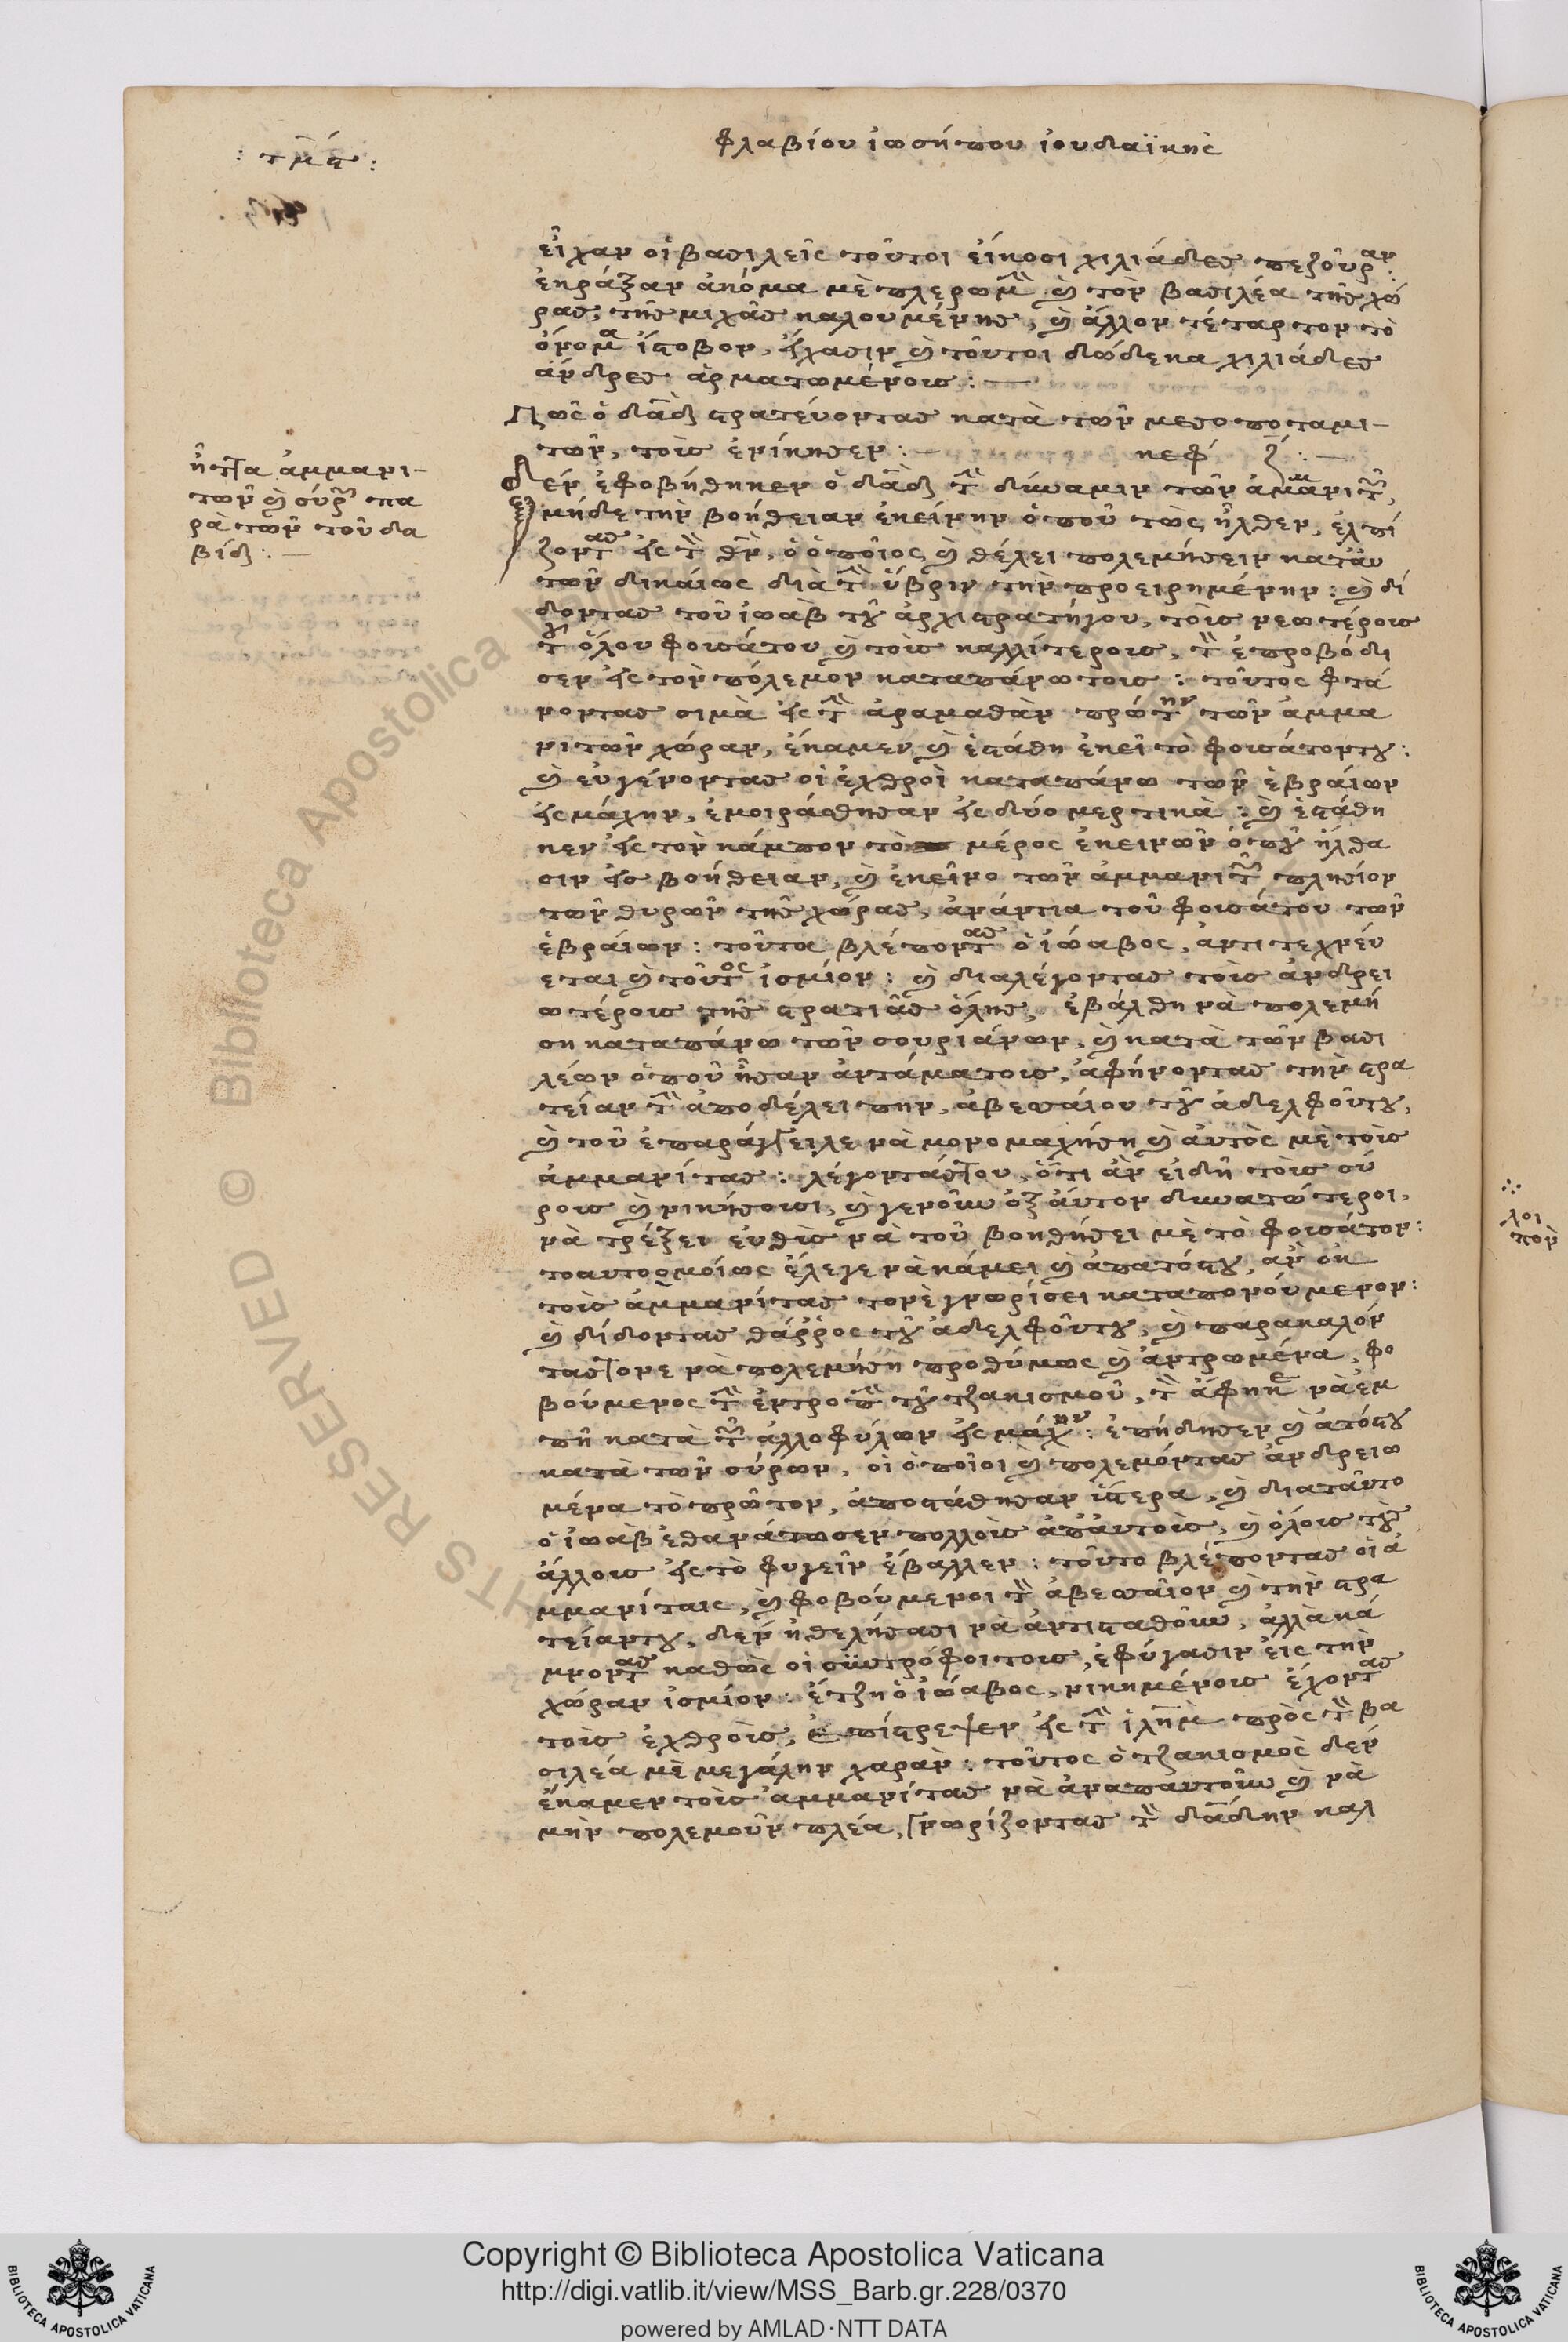 : τμϛ :
φλαβίου ἰωσήπου ἰουδαϊκης
εἶχαν οἱ βασιλεῖς τοῦτοι εἴκοσι χιλιάδες πεζούραν·
ἐκράξαν ἀκόμα μὲ πλερωμὴ καὶ τὸν βασιλέα τῆς χώ
ρας, τῆς μιχᾶς καλουμένης, καὶ ἄλλον τέταρτον τὸ
ὄνομα ἵστοβον, εἴχασιν καὶ τοῦτοι δώδεκα χιλιάδες
ἄνδρες ἀρματωμένοις : —
Πῶς ὁ δαδ στρατεύοντας κατὰ τῶν μεσοποταμι-
τῶν, τοὶς ἐνίκησεν : — κεφ ζ : —
ἧττα ἀμμανι-
τῶν καὶ σύρων πα
ρὰ τῶν τοῦ δα
βίδ : —
δὲν ἐφοβήθηκεν ὁ δαδ τὴν δύναμιν τῶν ἀμμανιτῶν,
μήδε τὴν βοήθειαν ἐκείνην ὁποῦ τῶς ἦλθεν, ἐλπί
ζοντας εἰς τὸν θν, ὁ ὁποῖος καὶ θέλει πολεμήσειν κατάυ
τῶν δικάιως διὰ τὴν ὕβριν τὴν προειρημένην : καὶ δί
δοντας τοῦ ἰωαβ τοῦ ἀρχιστρατήγου, τοὶς νεωτέροις
τοῦ ὅλου φουσάτου καὶ τοὶς καλλίτεροις, τὸν ἐπροβόδι
σεν εἰς τὸν πόλεμον καταπάνω τοις : τοῦτος φτά
νοντας σιμὰ εἰς τὴν ἀραμαθὰν πρώτην τῶν ἀμμα
νιτῶν χώραν, ἔκαμεν καὶ ἐστάθη ἐκεῖ τὸ φουσάτοντου :
καὶ εὐγένοντας οἱ ἐχθροὶ καταπάνω τῶν ἑβραίων
εἰς μάχην, ἐμοιράσθησαν εἰς δύο μερτικὰ : καὶ ἐστάθη
κεν εἰς τὸν κάμπον τὸ μέρος ἐκεινῶν ὁποῦ ἤλθα
σιν εἰς βοήθειαν, καὶ ἐκεῖνο τῶν ἀμμανιτῶν πλησίον
τῶν θυρῶν τῆς χώρας, ἀνάντια τοῦ φουσάτου τῶν
ἑβραίων : τοῦτα βλέποντας ὁ ἰώαβος, ἀντιτεχνέυ
εται καὶ τοῦτος ἰσμίον : καὶ διαλέγοντας τοὶς ἀνδρει
ωτέροις τῆς στρατιᾶς ὅλης, ἐβάλθη νὰ πολεμή
ση καταπάνω τῶν σουριάνων, καὶ κατὰ τῶν βασι
λέων ὁποῦ ἦσαν ἀντάματοις, ἀφήνοντας τὴν στρα
τείαν τὴν ἀποδέλειπην, ἀβεσαίου τοῦ ἀδελφοῦτου,
καὶ τοῦ ἐπαράγγειλε νὰ μονομαχήση καὶ ἀυτὸς μὲ τοὶς
ἀμμανίτας : λέγοντάςτου, ὅτι ἂν εἰδῆ τοὶς σύ
ροις καὶ νικήσουσι, καὶ γενοῦν ὀξ ἀύτον δυνατώτεροι,
νὰ τρέξει ἐυθὶς νὰ τοῦ βοηθήσει μὲ τὸ φουσάτον :
τοαυτοομοίως ἔλεγε νὰ κάμει καὶ ἀπατόςτου, ἂν ὀκ
τοὶς ἀμμανίτας τονὲ γνωρίσει καταπονούμενον :
καὶ δίδοντας θάῤῥος τοῦ ἀδελφοῦτου, καὶ παρακαλόν
ταςτονε νὰ πολεμήση προθύμως καὶ ἀντρωμένα, φο
βούμενος τὴν ἐντροπὴν τοῦ τζακισμοῦ, τὸν ἄφηκε νὰ ἔμ
πη κατὰ τῶν ἀλλοφύλων εἰς μάχην : ἐπήδησεν καὶ ἀτόςτου
κατὰ τῶν σύρων, οἱ ὁποῖοι καὶ πολεμόντας ἀνδρειω
μένα τὸ πρῶτον, ἀποστάθησαν ὕστερα, καὶ διαταῦτο
ὁ ἰωὰβ ἐθανάτωσεν πολλοὶς ἀπάυτοὶς, καὶ ὅλοις τοὺς
ἄλλοις εἰς τὸ φυγεῖν ἔβαλλεν : τοῦτο βλέποντας οἱ ἀ
μμανίταις, καὶ φοβούμενοι τὸν ἀβεσαῖον καὶ τὴν στρα
τείαντου, δὲν ἠθελήσασι νὰ ἀντισταθοῦν, ἀλλὰ κά
μνοντας καθὼς οἱ σύντρόφοιτοις, ἐφύγασιν εἰς τὴν
χώραν ἰσμίον : ἔτζη ὁ ἰώαβος, νικημένοις ἔχοντας
τοὶς ἐχθροὶς, ἐπίστρεψεν εἰς τὴν ἱλημ πρὸς τὸν βα
σιλέα μὲ μεγάλην χαρὰν : τοῦτος ὁ τζακισμὸς δὲν
ἔκαμεν τοὶς ἀμμανίτας νὰ ἀναπαυτοῦν καὶ νὰ
μὴν πολεμοῦν πλέα, γνωρίζοντας τὸν δάδην καλ
λοι
πὸν
Copyright © Biblioteca Apostolica Vaticana
http://digi.vatlib.it/view/MSS_Barb.gr.228/0370
powered by AMLAD·NTT DATA
BIBLIOTECA APOSTOLICA VATICANA
BIBLIOTECA APOSTOLICA VATICANA